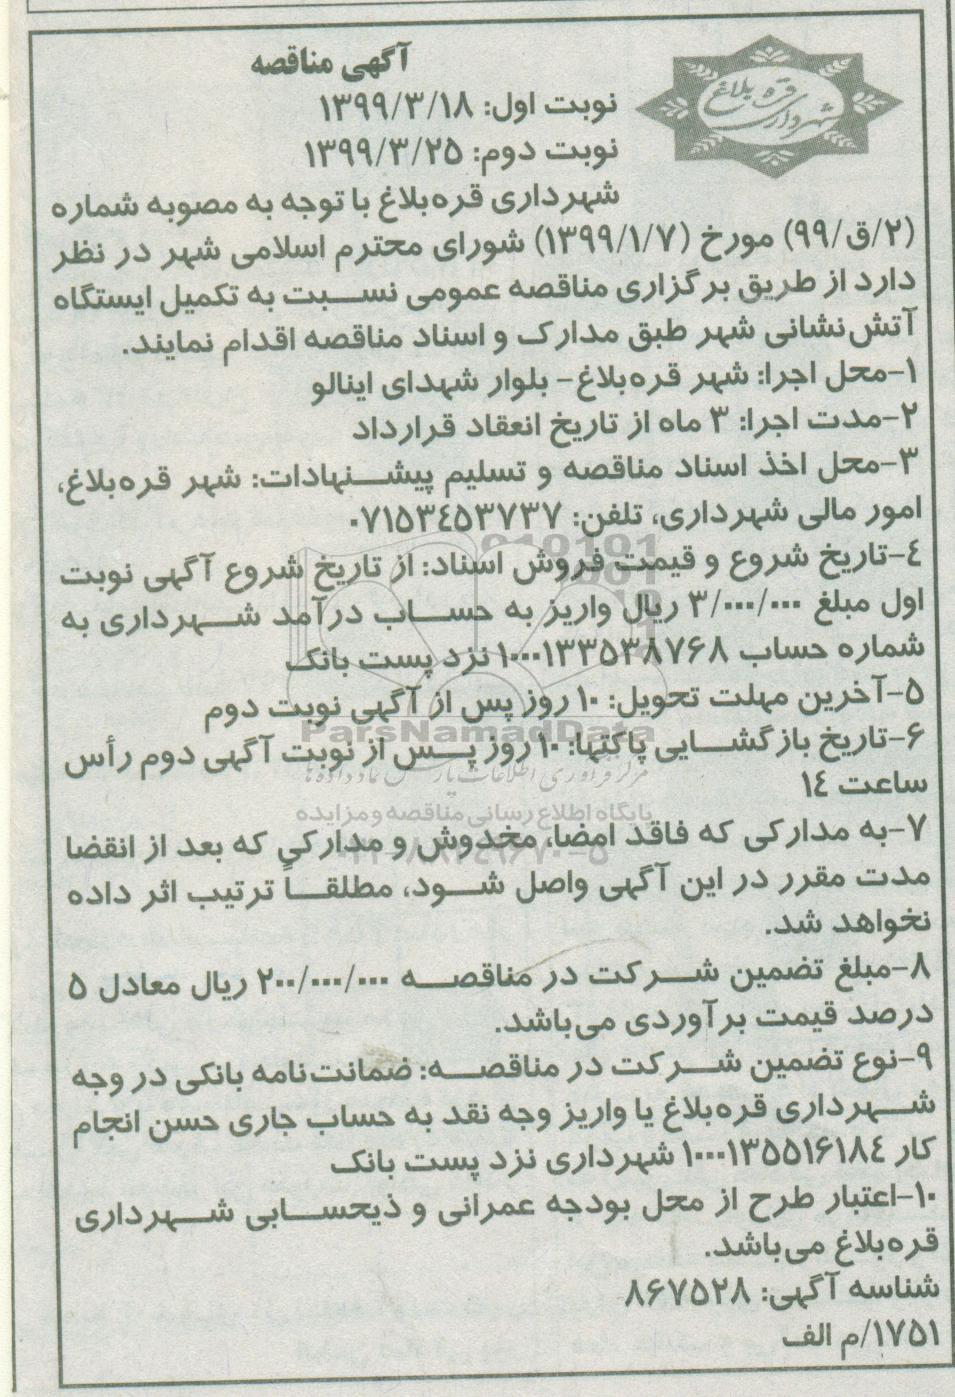 آگهی مناقصه
شهرداری قره بلاغ
نوبت اول: ۱۳۹۹/۳/۱۸
نوبت دوم: ۱۳۹۹/۳/۲۵
شهرداری قره‌بلاغ با توجه به مصوبه شماره
(۲/ق/۹۹) مورخ (۱۳۹۹/۱/۷) شورای محترم اسلامی شهر در نظر
دارد از طریق برگزاری مناقصه عمومی نسبت به تکمیل ایستگاه
آتش‌نشانی شهر طبق مدارک و اسناد مناقصه اقدام نمایند.
۱-محل اجرا: شهر قره‌بلاغ- بلوار شهدای اینالو
۲-مدت اجرا: ۳ ماه از تاریخ انعقاد قرارداد
۳-محل اخذ اسناد مناقصه و تسلیم پیشنهادات: شهر قره‌بلاغ،
امور مالی شهرداری، تلفن: ۰۷۱۵۳۴۵۳۷۳۷
۴-تاریخ شروع و قیمت فروش اسناد: از تاریخ شروع آگهی نوبت
اول مبلغ ۳/۰۰۰/۰۰۰ ریال واریز به حساب درآمد شهرداری به
شماره حساب ۱۰۰۰۱۳۳۵۳۸۷۶۸ نزد پست بانک
۵-آخرین مهلت تحویل: ۱۰ روز پس از آگهی نوبت دوم
ParsNamadData
۶-تاریخ بازگشایی پاکتها: ۱۰ روز پس از نوبت آگهی دوم رأس
مرکز فرآوری اطلاعات پارس نماد داده‌ها
ساعت ۱۴
پایگاه اطلاع رسانی مناقصه و مزایده
۷-به مدارکی که فاقد امضا، مخدوش و مدارکی که بعد از انقضا
۰۲۱-۸۸۳۴۹۶۷۰-۵
مدت مقرر در این آگهی واصل شود، مطلقاً ترتیب اثر داده
نخواهد شد.
۸-مبلغ تضمین شرکت در مناقصه ۲۰۰/۰۰۰/۰۰۰ ریال معادل ۵
درصد قیمت برآوردی می‌باشد.
۹-نوع تضمین شرکت در مناقصه: ضمانت‌نامه بانکی در وجه
شهرداری قره‌بلاغ یا واریز وجه نقد به حساب جاری حسن انجام
کار ۱۰۰۰۱۳۵۵۱۶۱۸۴ شهرداری نزد پست بانک
۱۰-اعتبار طرح از محل بودجه عمرانی و ذیحسابی شهرداری
قره‌بلاغ می‌باشد.
شناسه آگهی: ۸۶۷۵۲۸
۱۷۵۱/م الف